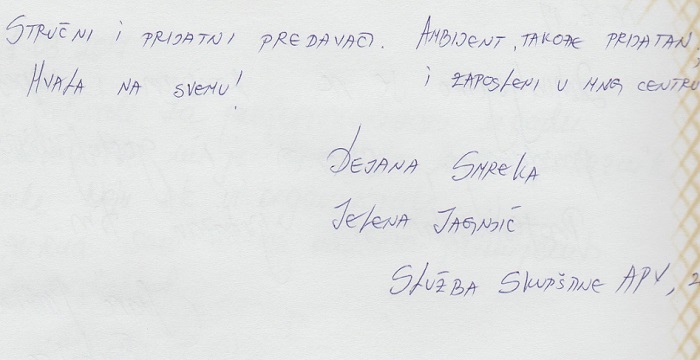 STRUČNI I PRIJATNI PREDAVAČI. AMBIJENT, TAKOĐE PRIJATAN,
HVALA NA SVEMU! I ZAPOSLENI U HNG CENTRU
DEJANA SMREKA
JELENA
SLUŽBA SKUPŠTINE APV, 2